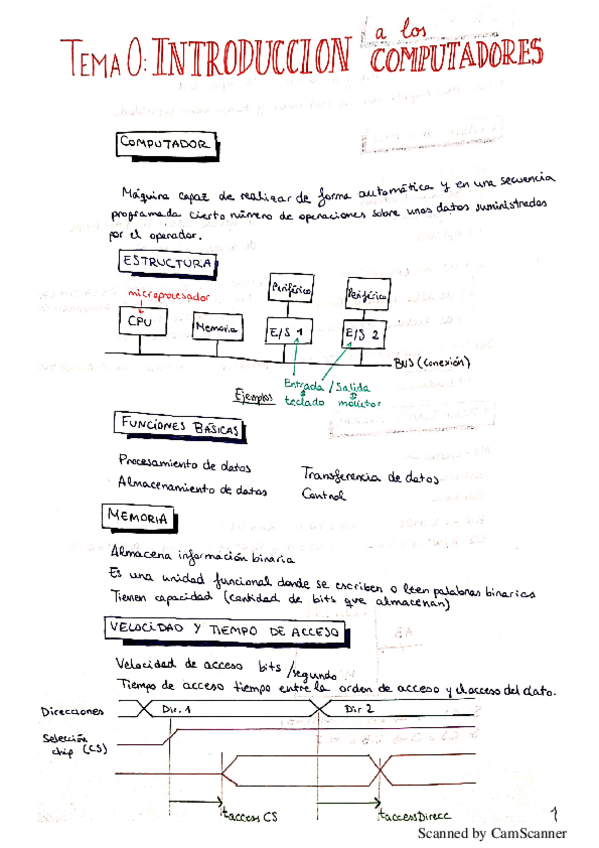 TEMA 0: INTRODUCCION a los COMPUTADORES
COMPUTADOR
Máquina capaz de realizar de forma automática y en una secuencia
programada cierto número de operaciones sobre unos datos suministrados
por el operador.
ESTRUCTURA
microprocesador
Periférico
Periférico
CPU
Memoria
E/S 1
E/S 2
BUS (Conexión)
Entrada / Salida
Ejemplos teclado monitor
FUNCIONES BÁSICAS
Procesamiento de datos
Transferencia de datos
Almacenamiento de datos
Control
MEMORIA
Almacena información binaria
Es una unidad funcional donde se escriben o leen palabras binarias
Tienen capacidad (cantidad de bits que almacenan)
VELOCIDAD Y TIEMPO DE ACCESO
Velocidad de acceso bits/segundo
Tiempo de acceso tiempo entre la orden de acceso y el acceso del dato.
Direcciones
Dir. 1
Dir 2
Selección
chip (CS)
taccess CS
taccessDirecc
1
Scanned by CamScanner